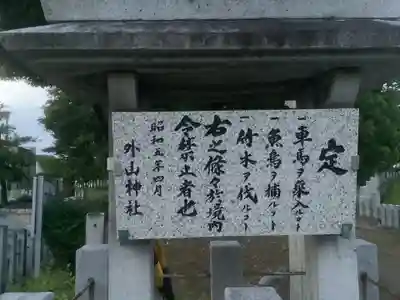 定
一車馬ヲ乗入ルコト
一魚鳥ヲ捕フコト
一竹木ヲ伐ルコト
右之條々於境内
令禁止者也
昭和五年四月
外山神社